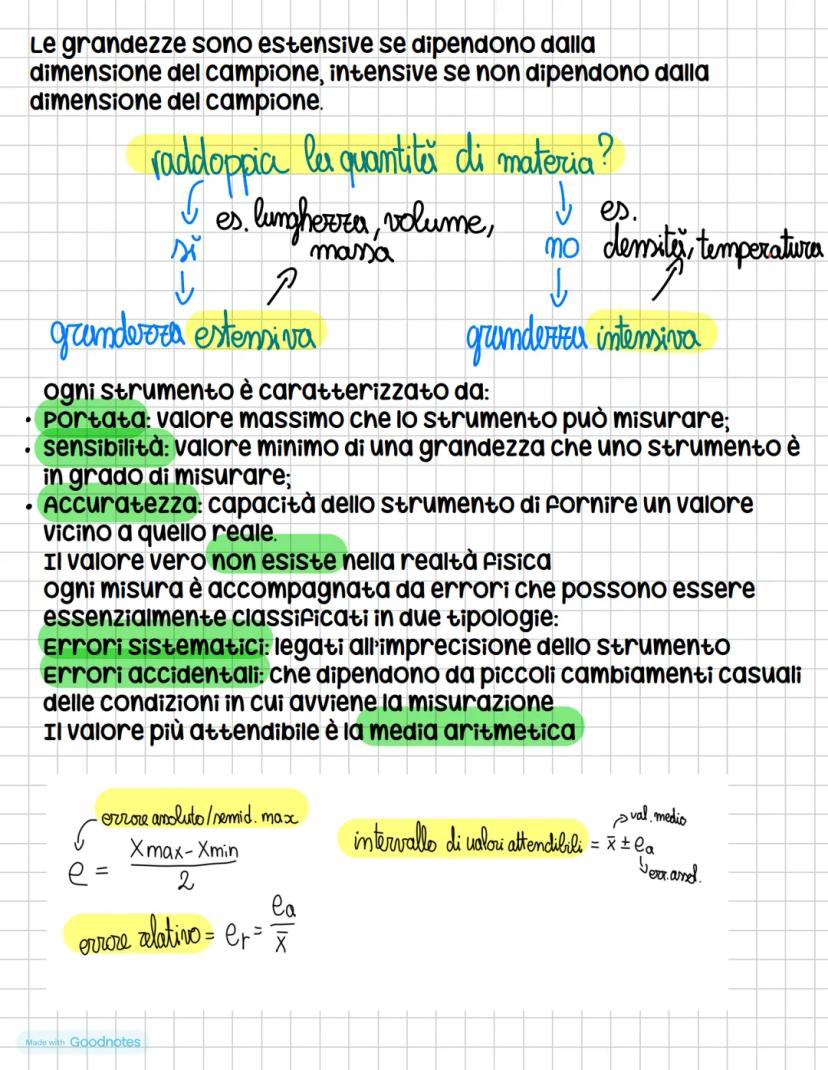 Le grandezze sono estensive se dipendono dalla
dimensione del campione, intensive se non dipendono dalla
dimensione del campione.
raddoppia la quantità di materia?
sì
es. lunghezza, volume,
massa
no
es.
densità, temperatura
grandezza estensiva
grandezza intensiva
Ogni strumento è caratterizzato da:
• Portata: valore massimo che lo strumento può misurare;
• Sensibilità: valore minimo di una grandezza che uno strumento è
in grado di misurare;
• Accuratezza: capacità dello strumento di fornire un valore
vicino a quello reale.
Il valore vero non esiste nella realtà fisica
Ogni misura è accompagnata da errori che possono essere
essenzialmente classificati in due tipologie:
Errori sistematici: legati all'imprecisione dello strumento
Errori accidentali: che dipendono da piccoli cambiamenti casuali
delle condizioni in cui avviene la misurazione
Il valore più attendibile è la media aritmetica
errore assoluto/semid. max
e = (Xmax - Xmin) / 2
errore relativo = er = ea / x̄
val. medio
intervallo di valori attendibili = x̄ ± ea
err. assol.
Made with Goodnotes